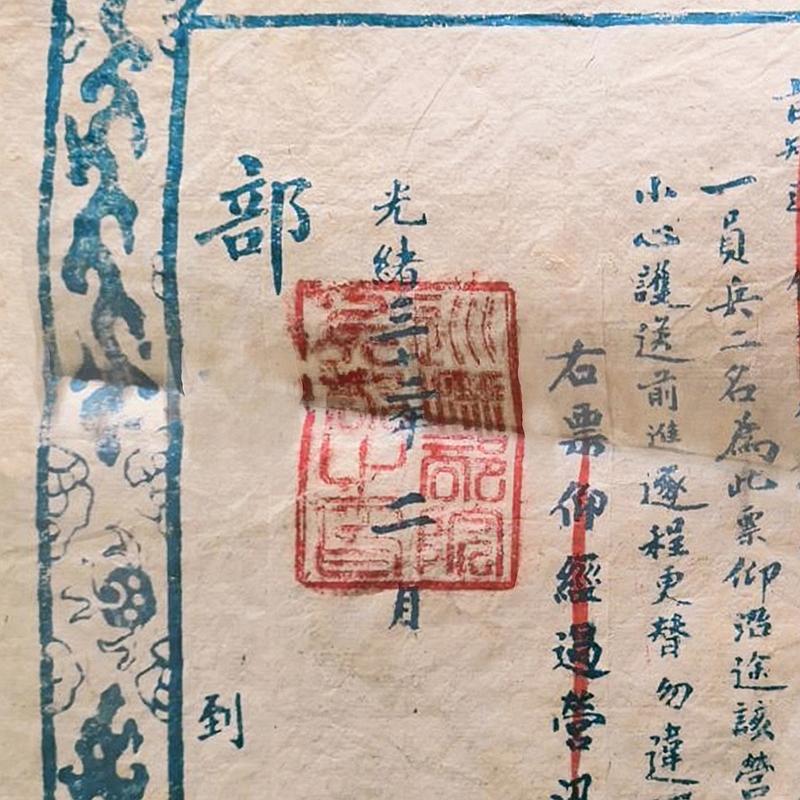 一員兵二名為此票仰沿途該營
小心護送前進逐程更替勿違
右票仰經過營汛
光緒三十二年二月
部
到